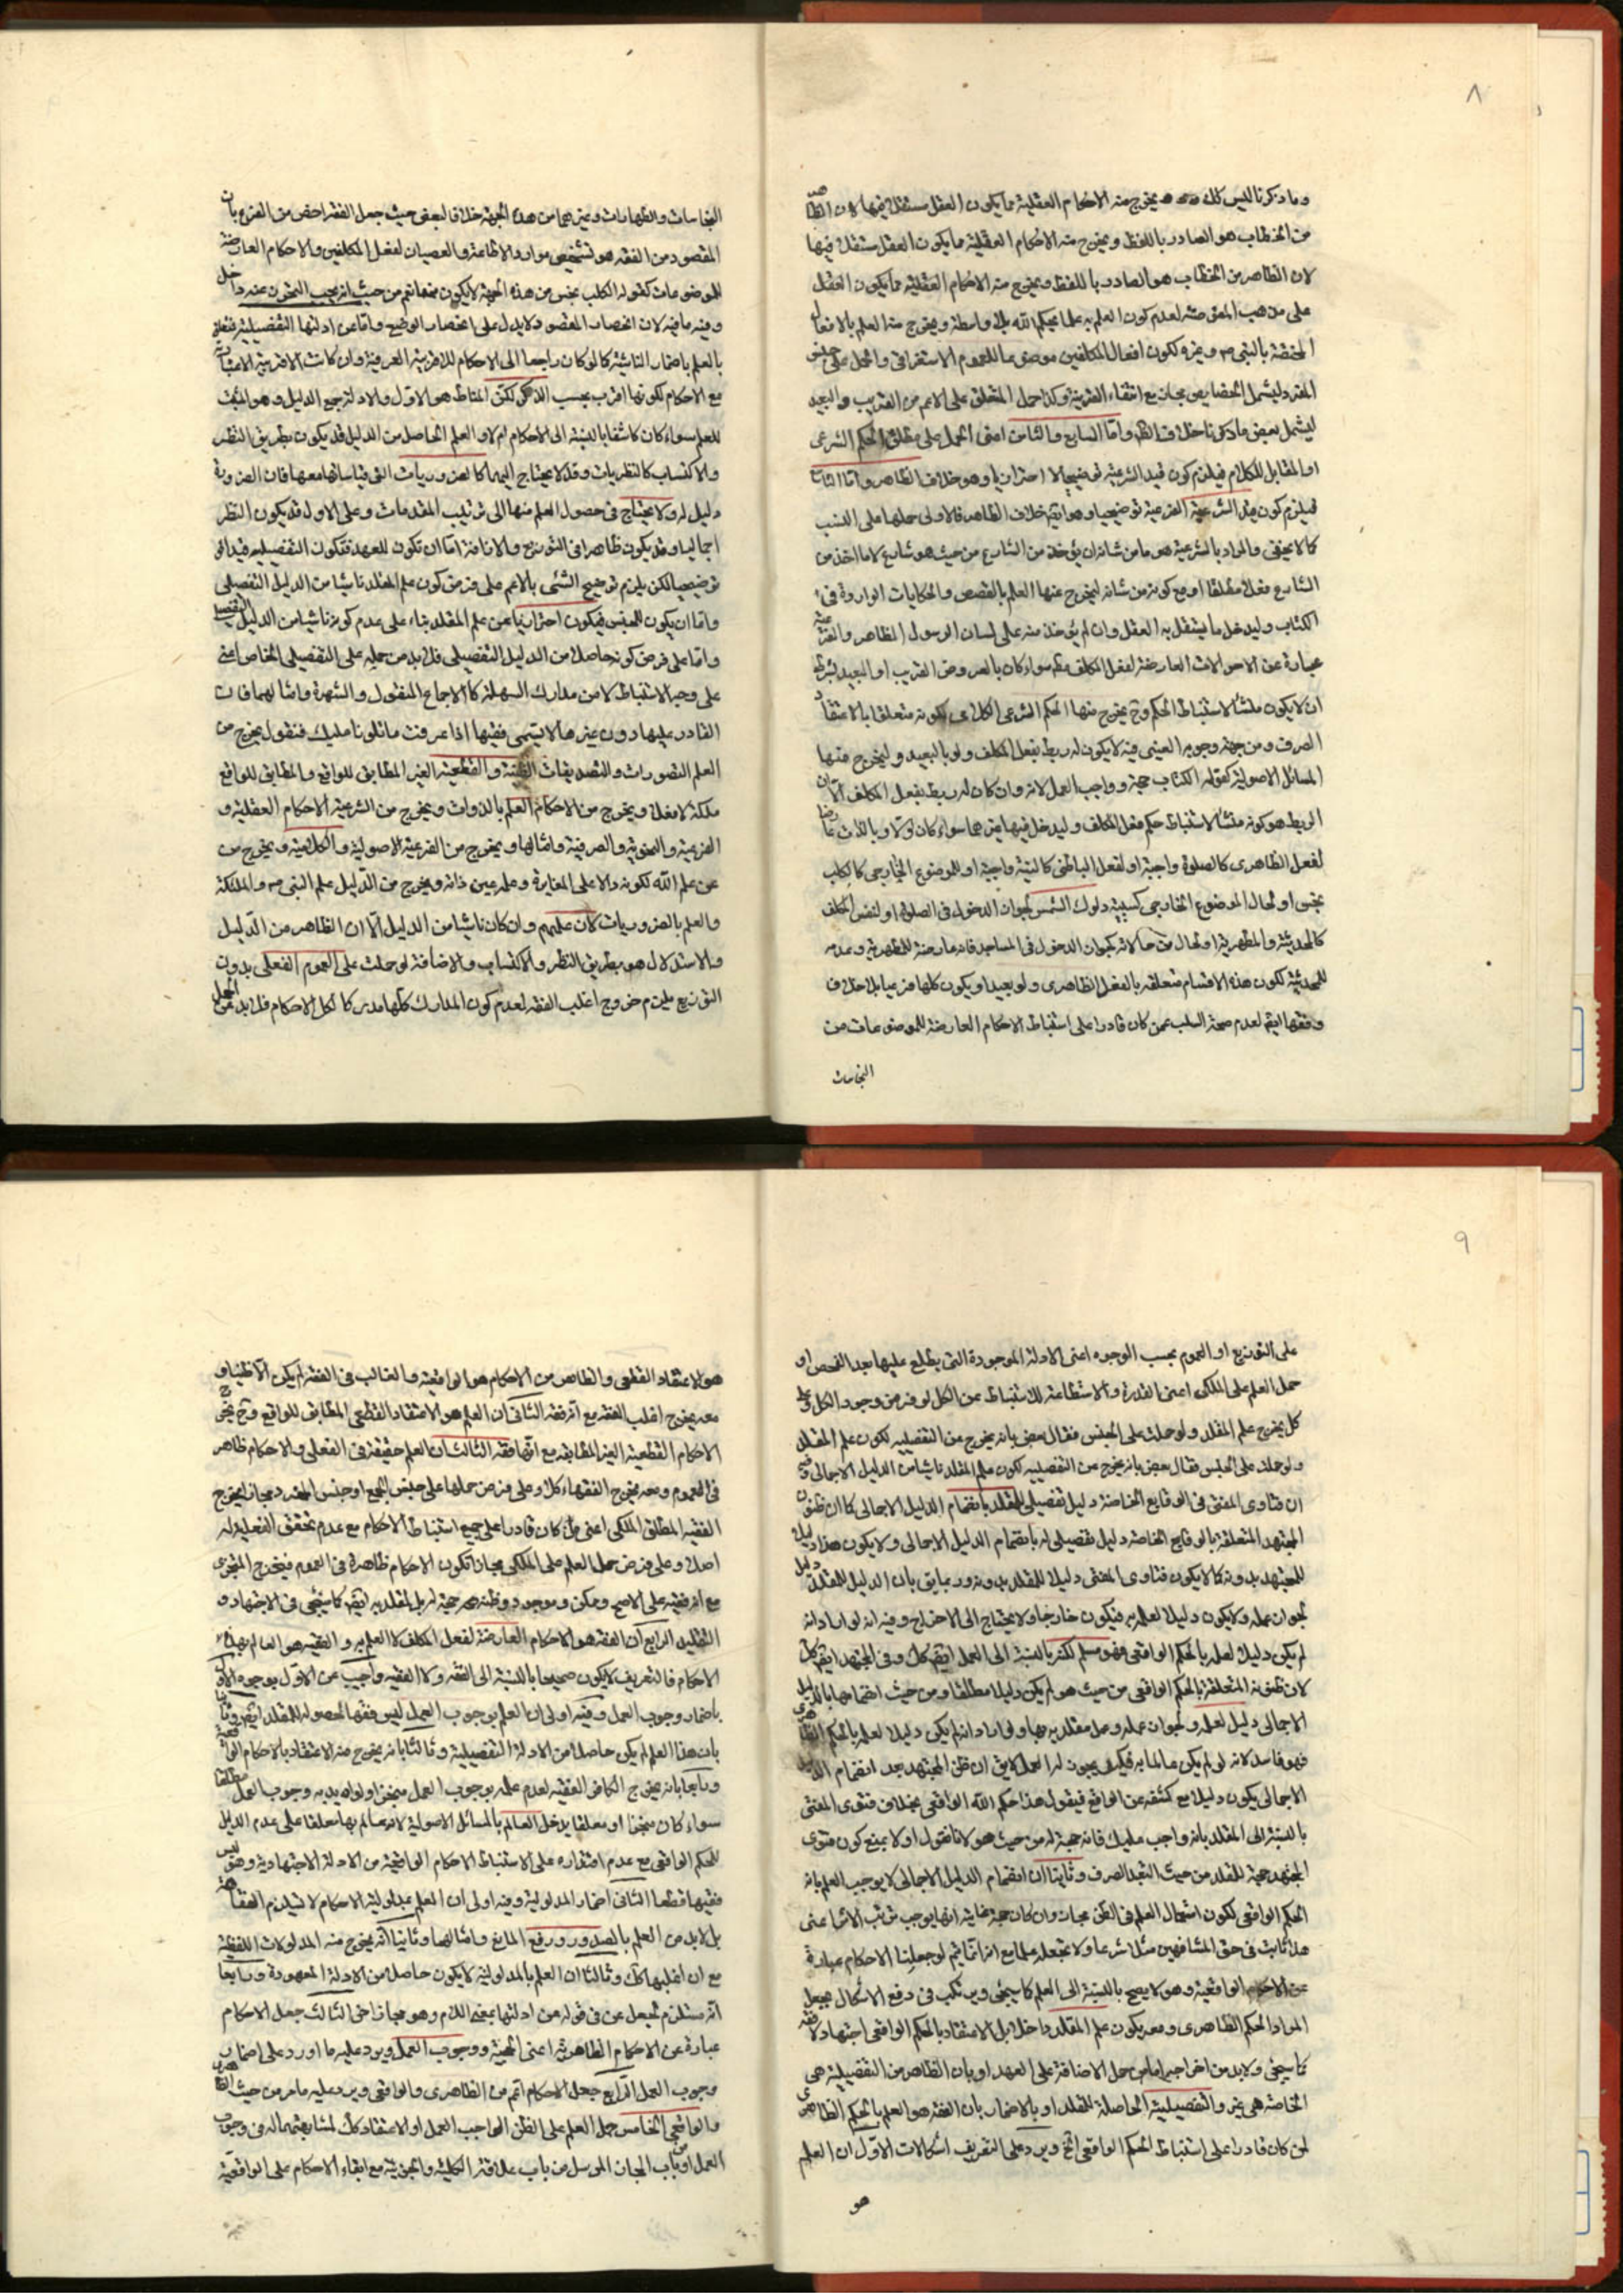 ٨
وما ذكرنا ليس كلك يخرج منه الاحكام العقلية مما يكون العقل مستقلا فيها لان الظاهر
من الخطاب هو الصادر باللفظ ويخرج منه الاحكام العقلية مما يكون العقل مستقلا فيها
لان الظاهر من الخطاب هو الصادر باللفظ ويخرج منه الاحكام العقلية مما يكون العقل
على مذهب المعتزلة لعدم كون العلم به علما بحكم الله بلا واسطة ويخرج منه العلم بالافعال
المختصة بالنبي ص وغيره لكون افعال المكلفين موضوعا للعموم الاستغراقي والحمل على جنس
المفرد ليشمل الخصايص مجاز مع انتفاء القرينة وكذا حمل المتعلق على الاعم من القريب والبعيد
ليشمل بعض ما ذكرنا خلاف الظ واما السابع والثامن اعنى الحمل على مطلق الحكم الشرعى
او المقابل للكلام فيلزم كون قيد الشرعية توضيحيا لا احترازيا وهو خلاف الظاهر واما الثالث
فيلزم كون قيد الشرعية الفرعية توضيحيا وهو ايضا خلاف الظاهر فالاولى حملها على النسب
كما لا يخفى والمراد بالشرعية هو ما من شانه ان يؤخذ من الشارع من حيث هو شارع لا ما اخذ من
الشارع فعلا مطلقا او مع كونه من شانه ليخرج عنها العلم بالقصص والحكايات الواردة في
الكتاب وليدخل ما يستقل به العقل وان لم يؤخذ منه على لسان الرسول الظاهر والفرعية
عبارة عن الاحوالات العارضة لفعل المكلف سواء كان بالعروض القريب او البعيد بشرط
ان لا يكون منشأ لاستنباط الحكم وح يخرج منها الحكم الشرعى الكلامى لكونه متعلقا بالاعتقاد
الصرف ومن جهة وجوبه العينى فيه لا يكون له ربط بفعل المكلف ولو بالبعيد وليخرج منها
المسائل الاصولية كقوله الكتاب حجة وواجب العمل لانه وان كان له ربط بفعل المكلف الا ان
الربط هو كونه منشأ لاستنباط حكم فعل المكلف وليدخل فيها غيرهما سواء كان اولا وبالذات عارضا
لفعل الظاهرى كالصلوة واجبة او لفعل الباطنى كالنية واجبة او للموضوع الخارجى كالكلب
نجس او لحال الموضوع الخارجى كسببية دلوك الشمس لجواز الدخول فى الصلوة او لنفس المكلف
كالمحدثية والمطهرية او لحال من حالاته كجواز الدخول فى المساجد فانه عارضة للمطهرية وعدمه
للمحدثية لكون هذه الاقسام متعلقه بالفعل الظاهرى ولو بعيدا ويكون كلها فرعيا بلا خلاف
وفقها ايضا لعدم صحة السلب عمن كان قادرا على استنباط الاحكام العارضة للموضوعات من
النجاسات
النجاسات والطهارات وغيرهما من هذه الجهة خلافا لبعض حيث جعل الفقه اخص من الفرع بان
المقصود من الفقه هو تشخيص موارد الاطاعة والعصيان لفعل المكلفين والاحكام العارضة
للموضوعات كقوله الكلب نجس من هذه الجهة لا يكون من حيث انه يجب التحرز عنه داخل
وفيه ما فيه لان انحصار المقصود لا يدل على انحصار الوضع واما عن ادلتها التفصيلية فمتعلق
بالعلم باضمار الناشئة كما لو كان راجعا الى الاحكام للاقربية العرفية وان كانت الاقربية الاعتبارية
مع الاحكام لكونها اقرب بحسب الذكر لكن المناط هو الاول والادلة جمع الدليل وهو المثبت
للعلم سواء كان كاشفا بالنسبة الى الاحكام ام لا والعلم الحاصل من الدليل قد يكون بطريق النظر
والاكتساب كالنظريات وقد لا يحتاج اليهما كالضروريات التى قياساتها معها فان الضرورة
دليل له ولا يحتاج فى حصول العلم منها الى ترتيب المقدمات وعلى الاول قد يكون النظر
اجماليا وقد يكون ظاهرا فى التوزيع والاضافة اما ان تكون للعهد فتكون التفصيلية قيدا
توضيحيا لكن يلزم توضيح الشئ بالاعم على فرض كون علم المقلد ناشيا من الدليل التفصيلى
واما ان يكون للجنس فيكون احترازيا عن علم المقلد بناء على عدم كونه ناشيا من الدليل التفصيلى
واما على فرض كونه حاصلا من الدليل التفصيلى فلا بد من حمله على التفصيلى الخاص اعنى
على وجه الاستنباط لا من مدارك السهلة كالاجماع المنقول والشهرة وامثالهما فان
القادر عليها دون غيرها لا يسمى فقيها اذا عرفت ما تلونا عليك فنقول يخرج من
العلم التصورات والتصديقات الظنية والقطعية الغير المطابق للواقع والمطابق للواقع
ملكة لا فعلا ويخرج من الاحكام العلم بالذوات ويخرج من الشرعية الاحكام العقلية و
العرفية والنحوية والصرفية وامثالها ويخرج من الفرعية الاصولية والكلامية ويخرج من
عن علم الله لكونه دالا على المغايرة وعلمه عين ذاته ويخرج من الدليل علم النبى ص والملائكة
والعلم بالضروريات لان علمهم وان كان ناشيا من الدليل الا ان الظاهر من الدليل
والاستدلال هو بطريق النظر والاكتساب والاضافة لو حملت على العموم الفعلى بدون
التوزيع يلزم خروج اغلب الفقه لعدم كون المدارك كلها مدركا لكل الاحكام فلا بد من الحمل
٩
على التوزيع او العموم بحسب الوجوه اعنى الادلة الموجودة التى يطلع عليها بعد الفحص او
حمل العلم على الملكى اعنى القدرة والاستطاعة للاستنباط عن الكل لو فرض وجود الكل وعلى
كل يخرج علم المقلد ولو حملت على الجنس فقال بعض بانه يخرج عن التفصيليه لكون علم المقلد
ولو حملت على الجنس فقال بعض بانه يخرج عن التفصيليه لكون علم المقلد ناشيا من الدليل الاجمالى وفيه
ان فتاوى المفتى فى الوقايع الخاصة دليل تفصيلى للمقلد بانضمام الدليل الاجمالى كما ان ظنون
المجتهد المتعلقة بالوقايع الخاصه دليل تفصيلى له بانضمام الدليل الاجمالى ولا يكون هذا دليل
للمجتهد بدونه كما لا يكون فتاوى المفتى دليلا للمقلد بدونه وربما يق بان الدليل للمقلد دليل
لجواز عمله ولا يكون دليلا لعلمه فيكون خارجا ولا يحتاج الى الاخراج وفيه انه لو اراد انه
لم يكن دليلا لعلمه بالحكم الواقعى فهو مسلم لكنه بالنسبة الى العمل ايضا كك وفى المجتهد ايضا كك
لان ظنونه المتعلقة بالحكم الواقعى من حيث هو لم يكن دليلا مطلقا ومن حيث انضمامها بالدليل
الاجمالى دليل لعلمه ولجواز عمله وعمل مقلديه بها ولو اراد انه لم يكن دليلا لعلمه بالحكم الظاهرى
فهو فاسد لانه لو لم يكن عالما به فكيف يجوز له العمل لا يق ان ظن المجتهد بعد انضمام الدليل
الاجمالى يكون دليلا مع كشفه عن الواقع فيقول هذا حكم الله الواقعى بخلاف فتوى المفتى
بالنسبة الى المقلد بانه واجب عليك فانه حجة له من حيث هو لانا نقول اولا يمنع كون فتوى
المجتهد حجة للمقلد من حيث التعبد الصرف وثانيا ان انضمام الدليل الاجمالى لا يوجب العلم بانه
الحكم الواقعى لكون استعمال العلم فى الظن مجاز وان كان حجة غايته انه يوجب ترتب الاثار عنى
هذا ثابت فى حق المشافهين مثلا شرعا ولا تجعله علما مع انه انما يتم لو جعلنا الاحكام عبارة
عن الاحكام الواقعية وهو لا يصح بالنسبة الى العلم كما سيجئ ويرتكب فى دفع الاشكال بجعل
المراد الحكم الظاهرى ومعه يكون علم المقلد داخلا بل الاعتقاد بالحكم الواقعى اجتهاد لا فقه
كما سيجئ ولا بد من اخراجه اما من حمل الاضافة على العهد او بان الظاهر من التفصيلية هى
الخاصة هى غير التفصيلية الحاصلة للمقلد او بالاضمار بان الفقه هو العلم بالحكم الظاهرى
لمن كان قادرا على استنباط الحكم الواقعى الخ ويرد على التعريف اشكالات الاول ان العلم
هو
هو الاعتقاد القطعى والظاهر من الاحكام هو الواقعية والغالب فى الفقه لم يكن الا ظنيا و
معه يخرج اغلب الفقه مع انه فقه الثانى ان العلم هو الاعتقاد القطعى المطابق للواقع وح يخرج
الاحكام القطعية الغير المطابقه مع انها فقه الثالث ان العلم حقيقة فى الفعلى والاحكام ظاهر
فى العموم ومعه يخرج الفقهاء كلا وعلى فرض حملها على جنس الجمع او جنس المفرد مجازا يخرج
الفقيه المطلق الملكى اعنى من كان قادرا على جميع استنباط الاحكام مع عدم تحقق الفعلية له
اصلا وعلى فرض حمل العلم على الملكى مجازا تكون الاحكام ظاهرة فى العموم فيخرج المتجزى
مع انه فقيه على الاصح وممكن وموجود وظنه حجة له بل لمقلديه ايضا كما سيجئ فى الاجتهاد و
التقليد الرابع ان الفقه هو الاحكام العارضة لفعل المكلف لا العلم به والفقيه هو العالم بهذه
الاحكام فالتعريف لا يكون صحيحا بالنسبة الى الفقه ولا الفقيه واجيب عن الاول بوجوه الاول
باضمار وجوب العمل وفيه اولا ان العلم بوجوب العمل ليس فقها لحصوله للمقلد ايضا وثانيا
بان هذا العلم لم يكن حاصلا من الادلة التفصيلية وثالثا بانه يخرج منه الاعتقاد بالاحكام الواقعية
ورابعا بانه يخرج الكافر الفقيه لعدم علمه بوجوب العمل منجزا ولو اريد به وجوب العمل مطلقا
سواء كان منجزا او معلقا يدخل العالم بالمسائل الاصولية لانه عالم بها معلقا على عدم الدليل
للحكم الواقعى مع عدم اقتداره على الاستنباط الاحكام الواقعية من الادلة الاجتهادية وهو ليس
فقيها قطعا الثانى اضمار المدلولية وفيه اولا ان العلم بمدلولية الاحكام لا يستلزم الفقاهة
بل لابد من العلم بالصدور ورفع المانع وامثالها وثانيا انه يخرج منه المدلولات اللفظية
مع ان اغلبها كك وثالثا ان العلم بالمدلولية لا يكون حاصلا من الادلة المعهودة ورابعا
انه مستلزم لجعل عن فى قوله عن ادلتها بمعنى اللام وهو مجاز اخر الثالث جعل الاحكام
عبارة عن الاحكام الظاهرية اعنى الحجية ووجوب العمل ويرد عليه ما اورد على اضمار
وجوب العمل الرابع جعل الاحكام اعم من الظاهرى والواقعى ويرد عليه ما مر من حيث الظاهرى
والواقعى الخامس حمل العلم على الظن الواجب العمل او الاعتقاد كك لمشابهتهما له فى وجوب
العمل او من باب المجاز المرسل من باب علاقة الكلية والجزئية مع ابقاء الاحكام على الواقعية